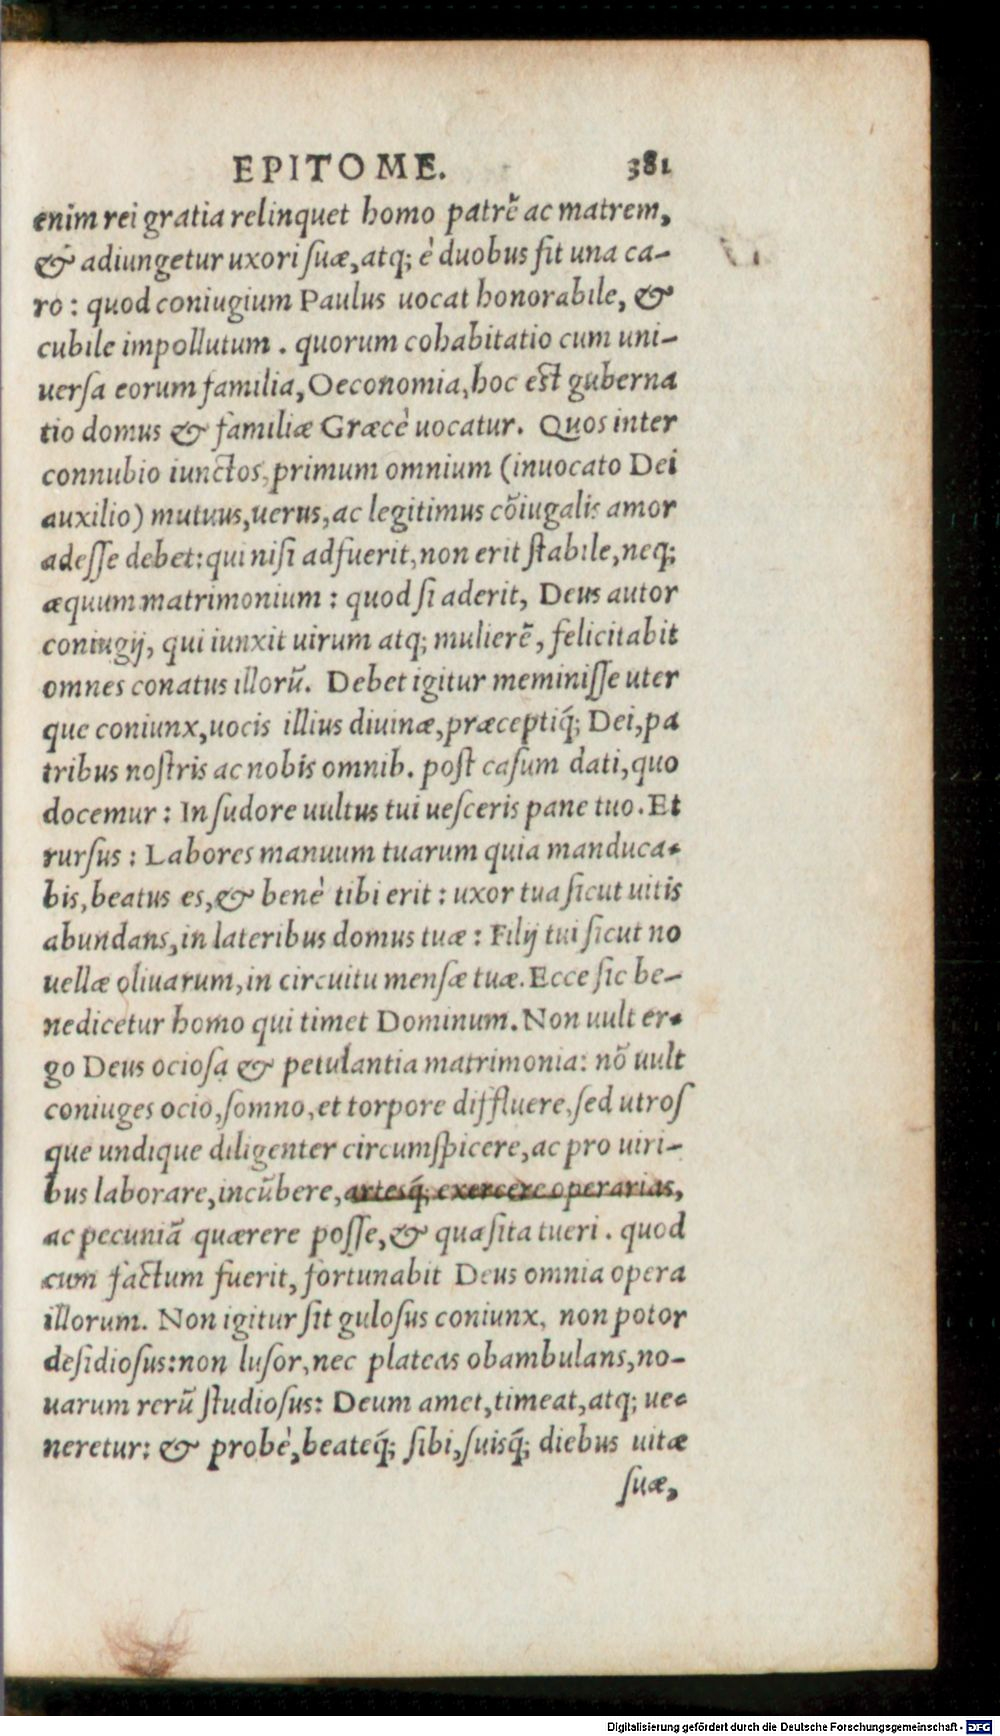 EPITOME. 381
enim rei gratia relinquet homo patrē ac matrem,
& adiungetur uxori suæ, atq; è duobus fit una ca-
ro: quod coniugium Paulus uocat honorabile, &
cubile impollutum. quorum cohabitatio cum uni-
uersa eorum familia, Oeconomia, hoc est guberna
tio domus & familiæ Græcè uocatur. Quos inter
connubio iunctos, primum omnium (inuocato Dei
auxilio) mutuus, uerus, ac legitimus cōiugalis amor
adesse debet: qui nisi adfuerit, non erit stabile, neq;
æquum matrimonium: quod si aderit, Deus autor
coniugij, qui iunxit uirum atq; mulierē, felicitabit
omnes conatus illorū. Debet igitur meminisse uter
que coniunx, uocis illius diuinæ, præceptiq́; Dei, pa
tribus nostris ac nobis omnib. post casum dati, quo
docemur: In sudore uultus tui uesceris pane tuo. Et
rursus: Labores manuum tuarum quia manduca-
bis, beatus es, & benè tibi erit: uxor tua sicut uitis
abundans, in lateribus domus tuæ: Filij tui sicut no
uellæ oliuarum, in circuitu mensæ tuæ. Ecce sic be-
nedicetur homo qui timet Dominum. Non uult er-
go Deus ociosa & petulantia matrimonia: nō uult
coniuges ocio, somno, et torpore diffluere, sed utros
que undique diligenter circumspicere, ac pro uiri-
bus laborare, incūbere, artesq́; exercere operarias,
ac pecuniā quærere posse, & quæsita tueri. quod
cum factum fuerit, fortunabit Deus omnia opera
illorum. Non igitur sit gulosus coniunx, non potor
desidiosus: non lusor, nec plateas obambulans, no-
uarum rerū studiosus: Deum amet, timeat, atq; ue-
neretur: & probè, beateq́; sibi, suisq́; diebus uitæ
suæ,
Digitalisierung gefördert durch die Deutsche Forschungsgemeinschaft - DFG